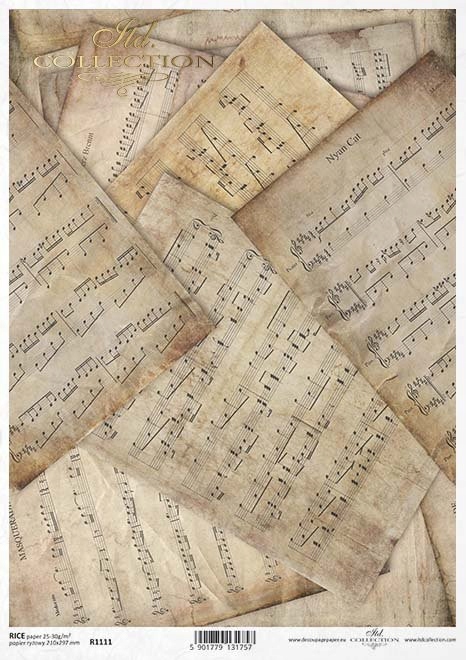 Itd.
COLLECTION
Nyan Cat
Piano
MASQUERA
RICE paper 25-30g/m²
papier ryżowy 210x297 mm
R1111
5 901779 131757
www.decoupagepaper.eu
Itd.
COLLECTION
www.itdcollection.com